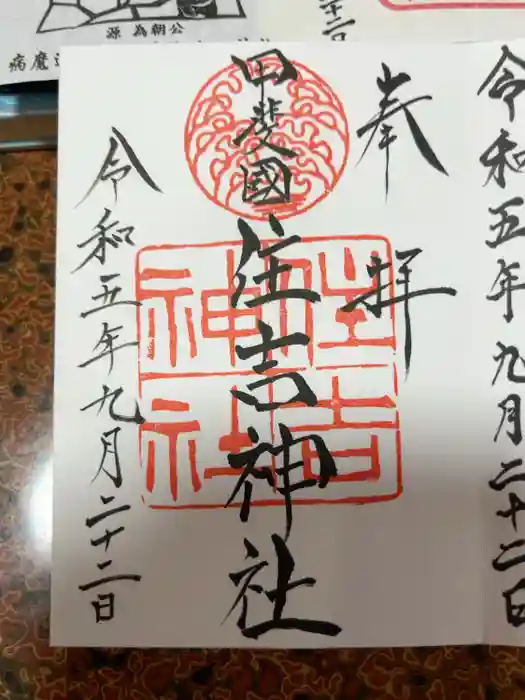 源為朝公
病魔
十二日
令和五年九月二十二日
奉拝
甲斐國
住吉神社
住吉
神社
令和五年九月二十二日